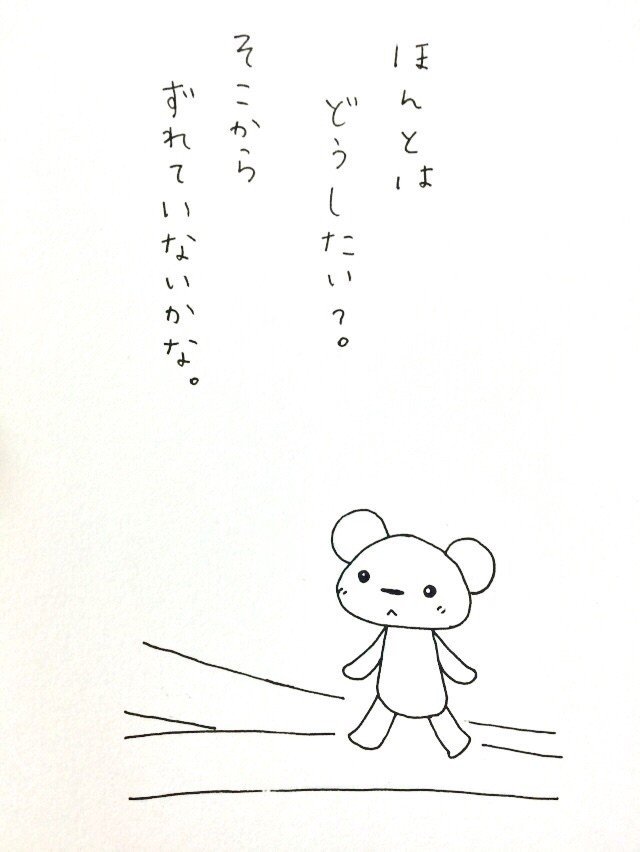 ほんとは
どうしたい？。
そこから
ずれていないかな。